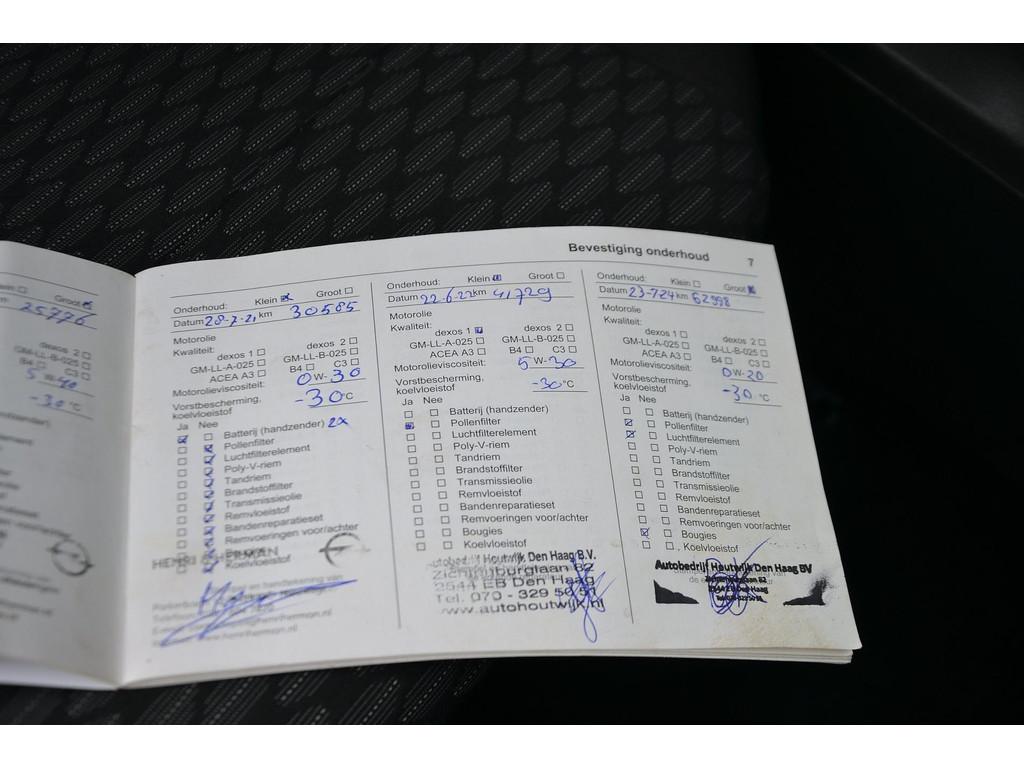 Bevestiging onderhoud 7
Klein ☐ Groot ☒
km 25776
dexos 2 ☐
GM-LL-B-025 ☐
B4 ☐ C3 ☐
5 W-40
-30 °C
Onderhoud: Klein ☒ Groot ☐
Datum 28-7-21 km 30585
Motorolie
Kwaliteit:
dexos 1 ☐ dexos 2 ☐
GM-LL-A-025 ☐ GM-LL-B-025 ☐
ACEA A3 ☐ B4 ☐ C3 ☐
Motorolieviscositeit: 0W-30
Vorstbescherming,
koelvloeistof -30°C
Ja Nee
Batterij (handzender) 2x
Pollenfilter
Luchtfilterelement
Poly-V-riem
Tandriem
Brandstoffilter
Transmissieolie
Remvloeistof
Bandenreparatieset
Remvoeringen voor/achter
Koelvloeistof
Onderhoud: Klein ☒ Groot ☐
Datum 22-6-22 km 41729
Motorolie
Kwaliteit:
dexos 1 ☒ dexos 2 ☐
GM-LL-A-025 ☐ GM-LL-B-025 ☐
ACEA A3 ☐ B4 ☐ C3 ☐
Motorolieviscositeit: 5 W-30
Vorstbescherming,
koelvloeistof -30°C
Ja Nee
☐ ☐ Batterij (handzender)
☒ ☐ Pollenfilter
☐ ☐ Luchtfilterelement
☐ ☐ Poly-V-riem
☐ ☐ Tandriem
☐ ☐ Brandstoffilter
☐ ☐ Transmissieolie
☐ ☐ Remvloeistof
☐ ☐ Bandenreparatieset
☐ ☐ Remvoeringen voor/achter
☐ ☐ Bougies
☐ ☐ Koelvloeistof
Autobedrijf Houtwijk Den Haag B.V.
Zichtenburglaan 82
2544 EB Den Haag
Tel. 070 - 329 50 51
www.autohoutwijk.nl
Onderhoud: Klein ☐ Groot ☒
Datum 23-7-24 km 62998
Motorolie
Kwaliteit:
dexos 1 ☐ dexos 2 ☐
GM-LL-A-025 ☐ GM-LL-B-025 ☐
ACEA A3 ☐ B4 ☐ C3 ☐
Motorolieviscositeit: 0W-20
Vorstbescherming,
koelvloeistof -30 °C
Ja Nee
☐ ☐ Batterij (handzender)
☒ ☐ Pollenfilter
☒ ☐ Luchtfilterelement
☐ ☐ Poly-V-riem
☐ ☐ Tandriem
☐ ☐ Brandstoffilter
☐ ☐ Transmissieolie
☐ ☐ Remvloeistof
☐ ☐ Bandenreparatieset
☐ ☐ Remvoeringen voor/achter
☒ ☐ Bougies
☐ ☐ Koelvloeistof
Autobedrijf Houtwijk Den Haag BV
Zichtenburglaan 82
2544 EB Den Haag